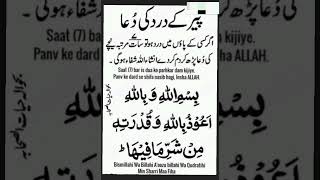 پیر کے درد کی دُعا
اگر کسی کے پاؤں میں درد ہو تو سات مرتبہ نیچے
کی دُعا پڑھ کر دم کر دے انشااللہ شفاء ہوگی۔
Saat (7) bar is dua ko parhkar dam kijiye.
Panv ke dard se shifa nasib hogi, Insha ALLAH.
بِسْمِ اللّٰهِ وَ بِاللّٰهِ
اَعُوْذُ بِاللّٰهِ وَ قُدْرَتِهٖ
مِنْ شَرِّ مَا فِيْهَا
Bismillahi Wa Billahi A'oozu billahi Wa Qudratihi
Min Sharri Maa Fiha